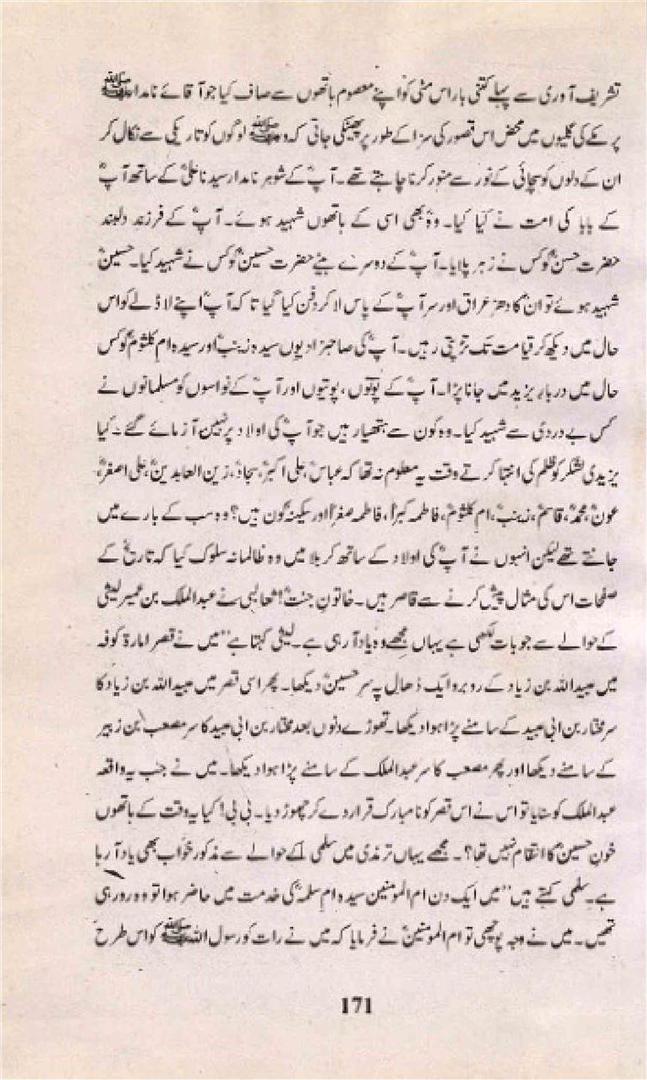 تشریف آوری سے پہلے کتنی بار اس مٹی کو اپنے معصوم ہاتھوں سے صاف کیا جو آقائے نامدار ﷺ
پر مکے کی گلیوں میں محض اس قصور کی سزا کے طور پر پھینکی جاتی کہ وہ ﷺ لوگوں کو تاریکی سے نکال کر
ان کے دلوں کو سچائی کے نور سے منور کرنا چاہتے تھے۔ آپؓ کے شوہر نامدار سیدنا علیؓ کے ساتھ آپؓ
کے بابا کی امت نے کیا کیا۔ وہؓ بھی اسی کے ہاتھوں شہید ہوئے۔ آپؓ کے فرزند دلبند
حضرت حسنؓ کو کس نے زہر پلایا۔ آپؓ کے دوسرے بیٹے حضرت حسینؓ کو کس نے شہید کیا۔ حسینؓ
شہید ہوئے تو ان کا دھڑ عراق اور سر آپؓ کے پاس لا کر دفن کیا گیا تا کہ آپؓ اپنے لاڈلے کو اس
حال میں دیکھ کر قیامت تک تڑپتی رہیں۔ آپؓ کی صاحبزادیوں سیدہ زینبؓ اور سیدہ ام کلثومؓ کو کس
حال میں دربار یزید میں جانا پڑا۔ آپؓ کے پوتوں، پوتیوں اور آپؓ کے نواسوں کو مسلمانوں نے
کس بے دردی سے شہید کیا۔ وہ کون سے ہتھیار ہیں جو آپؓ کی اولاد پر نہیں آزمائے گئے۔ کیا
یزیدی لشکر کو ظلم کی انتہا کرتے وقت یہ معلوم نہ تھا کہ عباسؓ، علی اکبرؓ، سجادؓ، زین العابدینؓ، علی اصغرؓ،
عونؓ، محمدؓ، قاسمؓ، زینبؓ، ام کلثومؓ، فاطمہ کبراؓ، فاطمہ صغراؓ اور سکینہؓ کون ہیں؟ وہ سب کے بارے میں
جانتے تھے لیکن انہوں نے آپؓ کی اولاد کے ساتھ کربلا میں وہ ظالمانہ سلوک کیا کہ تاریخ کے
صفحات اس کی مثال پیش کرنے سے قاصر ہیں۔ خاتونِ جنتؓ! ثعالبی نے عبدالملک بن عمیر لیثی
کے حوالے سے جو بات لکھی ہے یہاں مجھے وہ یاد آ رہی ہے۔ لیثی کہتا ہے ”میں نے قصر امارۃ کوفہ
میں عبیداللہ بن زیاد کے روبرو ایک ڈھال پہ سر حسینؓ دیکھا۔ پھر اسی قصر میں عبیداللہ بن زیاد کا
سر مختار بن ابی عبید کے سامنے پڑا ہوا دیکھا۔ تھوڑے دنوں بعد مختار بن ابی عبید کا سر مصعب بن زبیر
کے سامنے دیکھا اور پھر مصعب کا سر عبدالملک کے سامنے پڑا ہوا دیکھا۔ میں نے جب یہ واقعہ
عبدالملک کو سنایا تو اس نے اس قصر کو نامبارک قرار دے کر چھوڑ دیا۔ بی بی! کیا یہ وقت کے ہاتھوں
خونِ حسینؓ کا انتقام نہیں تھا؟۔ مجھے یہاں ترمذی میں سلمی کے حوالے سے مذکور خواب بھی یاد آ رہا
ہے۔ سلمی کہتے ہیں ”میں ایک دن ام المومنین سیدہ ام سلمہؓ کی خدمت میں حاضر ہوا تو وہ رو رہی
تھیں۔ میں نے وجہ پوچھی تو ام المومنینؓ نے فرمایا کہ میں نے رات کو رسول اللہ ﷺ کو اس طرح
171